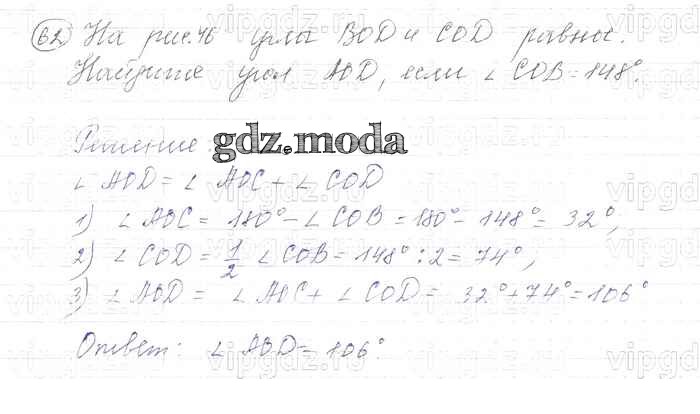 62 На рис.46 углы BOD и COD равны.
Найдите угол AOD, если ∠ COB = 148°.
Решение:
gdz.moda
∠ AOD = ∠ AOC + ∠ COD
1) ∠ AOC = 180° - ∠ COB = 180° - 148° = 32°;
2) ∠ COD = 1/2 ∠ COB = 148° : 2 = 74°;
3) ∠ AOD = ∠ AOC + ∠ COD = 32° + 74° = 106°
Ответ: ∠ AOD = 106°.